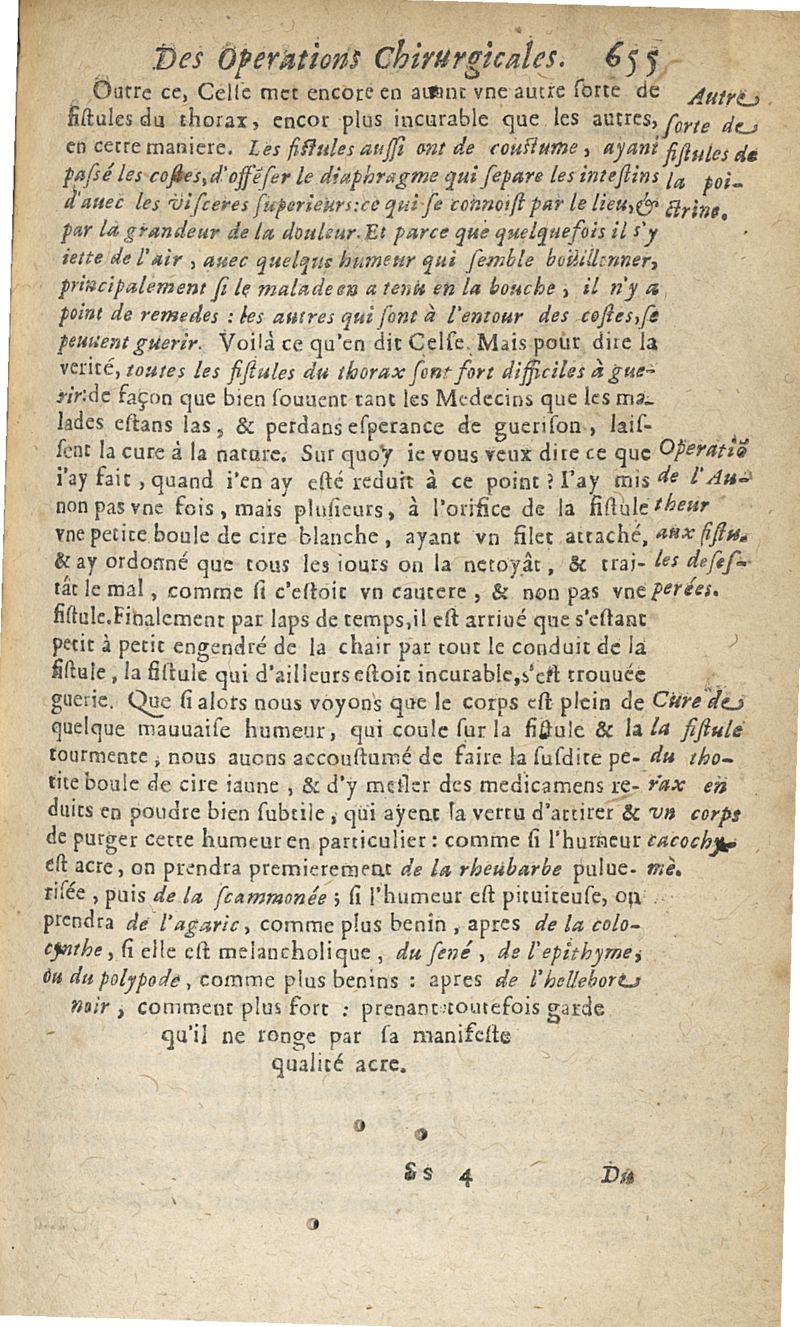 Des Operations Chirurgicales. 655
Outre ce, Celse met encore en auant vne autre sorte de
fistules du thorax, encor plus incurable que les autres,
en cette maniere. Les fistules aussi ont de coustume, ayant
passé les costes, d'offẽser le diaphragme qui separe les intestins
d'auec les visceres superieurs: ce qui se connoist par le lieu, &
par la grandeur de la douleur. Et parce que quelquefois il s'y
iette de l'air, auec quelque humeur qui semble boüillonner,
principalement si le malade en a tenu en la bouche, il n'y a
point de remedes: les autres qui sont à l'entour des costes, se
peuuent guerir. Voilà ce qu'en dit Celse. Mais pour dire la
verité, toutes les fistules du thorax sont fort difficiles à gue-
rir: de façon que bien souuent tant les Medecins que les ma-
lades estans las, & perdans esperance de guerison, lais-
sent la cure à la nature. Sur quoy ie vous veux dire ce que
i'ay fait, quand i'en ay esté reduit à ce point? I'ay mis
non pas vne fois, mais plusieurs, à l'orifice de la fistule
vne petite boule de cire blanche, ayant vn filet attaché,
& ay ordonné que tous les iours on la netoyât, & trai-
tât le mal, comme si c'estoit vn cautere, & non pas vne
fistule. Finalement par laps de temps, il est arriué que s'estant
petit à petit engendré de la chair par tout le conduit de la
fistule, la fistule qui d'ailleurs estoit incurable, s'est trouuée
guerie. Que si alors nous voyons que le corps est plein de
quelque mauuaise humeur, qui coule sur la fistule & la
tourmente, nous auons accoustumé de faire la susdite pe-
tite boule de cire iaune, & d'y mesler des medicamens re-
duits en poudre bien subtile, qui ayent la vertu d'attirer &
de purger cette humeur en particulier: comme si l'humeur
est acre, on prendra premierement de la rheubarbe pulue-
risée, puis de la scammonée; si l'humeur est pituiteuse, on
prendra de l'agaric, comme plus benin, apres de la colo-
cynthe, si elle est melancholique, du sené, de l'epithyme,
ou du polypode, comme plus benins: apres de l'hellebore
noir, comment plus fort: prenant toutefois garde
qu'il ne ronge par sa manifeste
qualité acre.
Autre
sorte de
fistules de
la poi-
ctrine.
Operatiõ
de l'Au-
theur
aux fistu-
les deses-
perées.
Cure de
la fistule
du tho-
rax en
vn corps
cacochy-
me.
Ss 4
Du